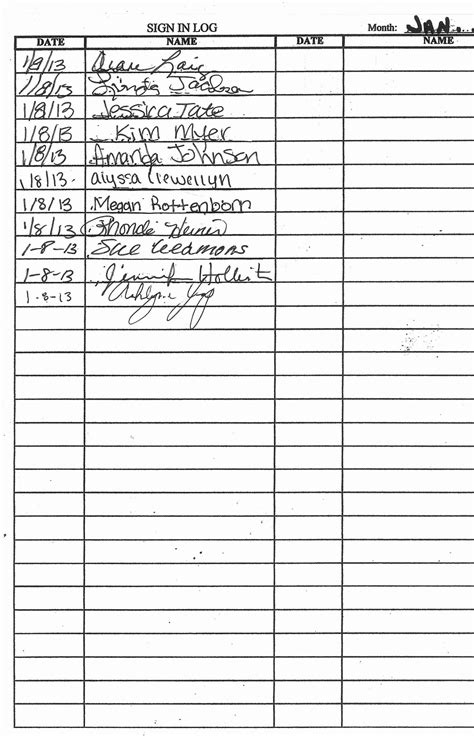 SIGN IN LOG Month: JAN
DATE NAME DATE NAME
1/9/13 Diane Laig
1/8/13 Linda Jackson
1/8/13 Jessica Tate
1/8/13 Kim Myer
1/8/13 Amanda Johnson
1/8/13 alyssa llewellyn
1/8/13 Megan Rottenborn
1/8/13 Rhonda
1-8-13 Sue
1-8-13 Jennifer
1-8-13